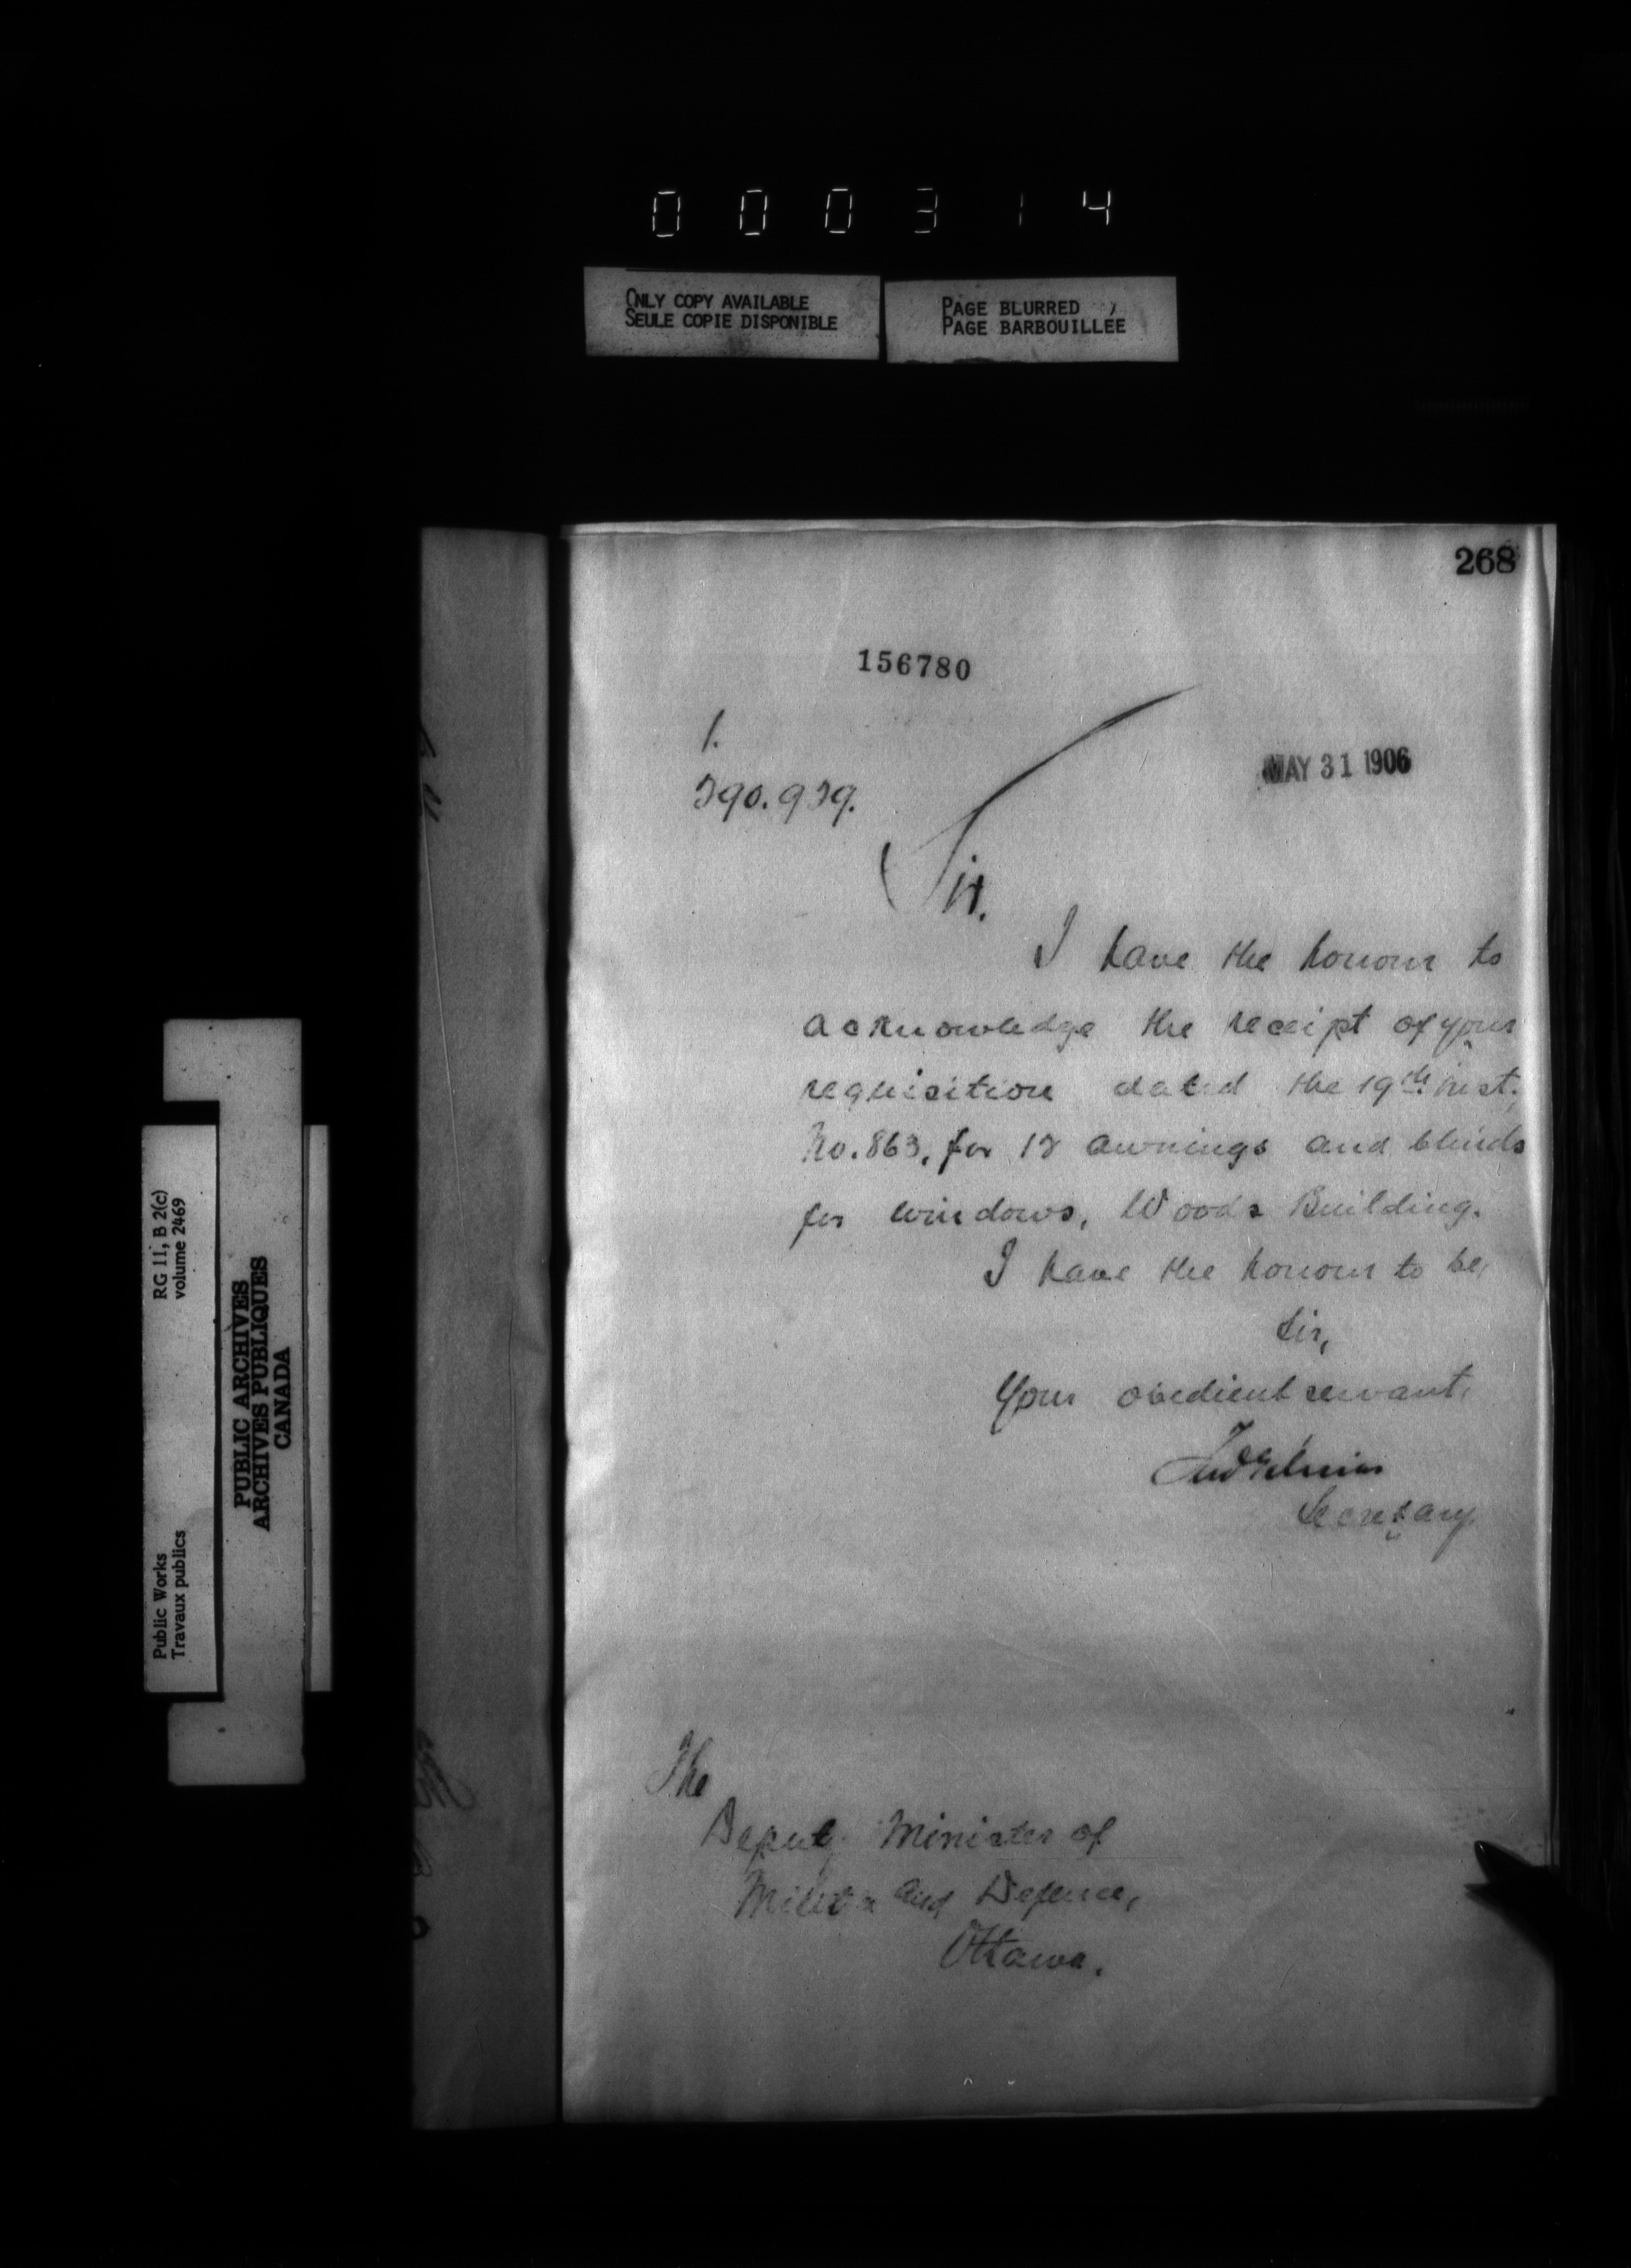 000314
ONLY COPY AVAILABLE
SEULE COPIE DISPONIBLE
PAGE BLURRED
PAGE BARBOUILLEE
268
156780
MAY 31 1906
1.
Sir.
I have the honour to
acknowledge the receipt of your
requisition dated the 19th inst.
No. 863, for awnings and blinds
for windows, Woods Building.
I have the honour to be,
Sir,
Your obedient servant,
Secretary
The
Deputy Minister of
Militia and Defence,
Ottawa.
RG 11, B 2(c)
volume 2469
Public Works
Travaux publics
PUBLIC ARCHIVES
ARCHIVES PUBLIQUES
CANADA